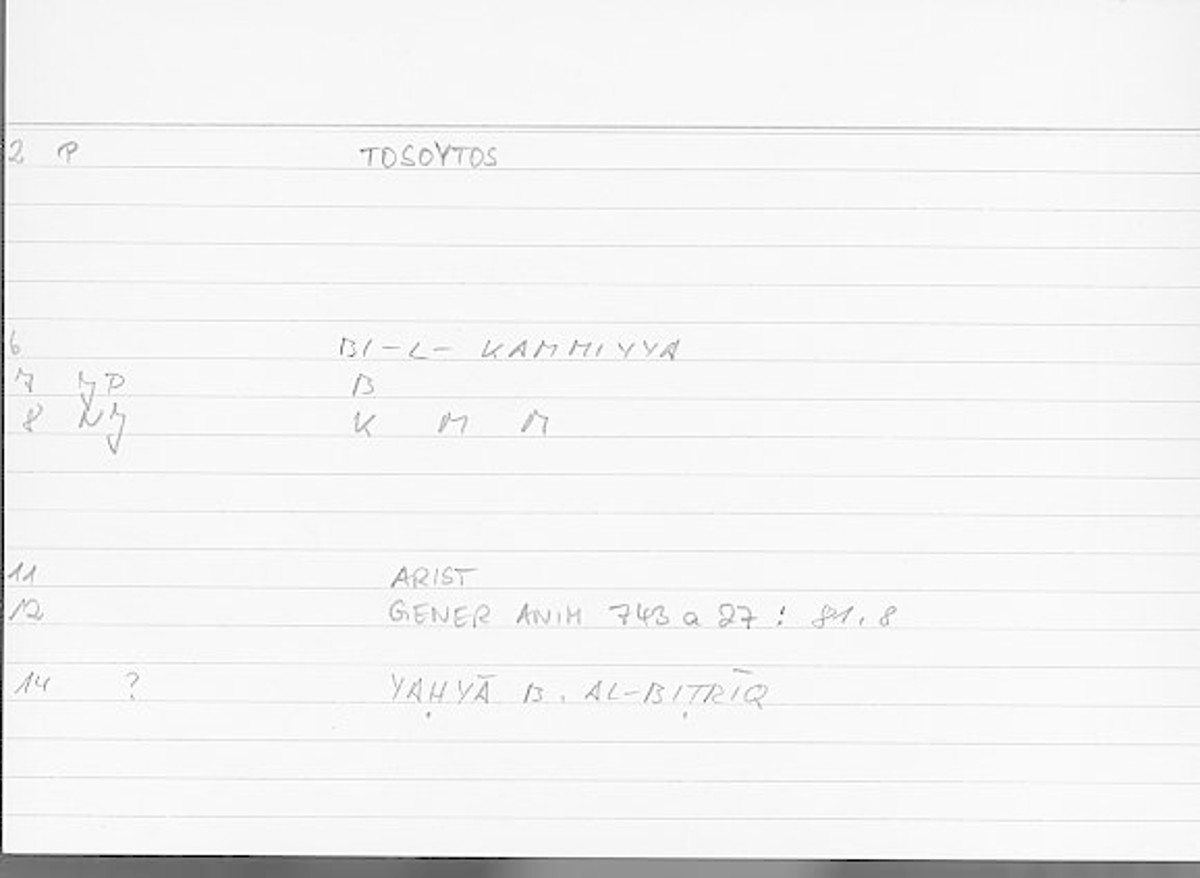 2 P TOSOYTOS
6 BI-L- KAMMIYYA
7 YP B
8 NY K M M
11 ARIST
12 GENER ANIM 743 a 27 : 81.8
14 ? YAḤYĀ B. AL-BIṬRĪQ